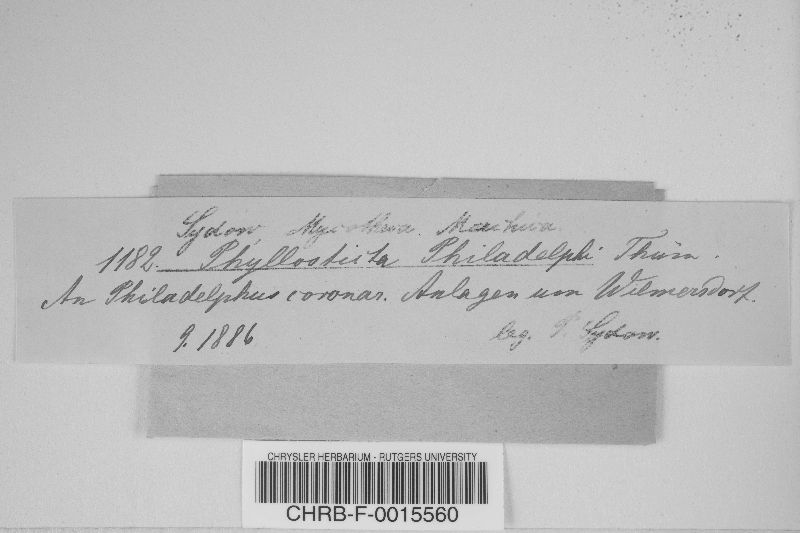 Sydow Mycotheca. Marchica.
1182. Phyllosticta Philadelphi Thüm.
An Philadelphus coronar. Anlagen um Wilmersdorf.
9. 1886
leg. P. Sydow.
CHRYSLER HERBARIUM - RUTGERS UNIVERSITY
CHRB-F-0015560